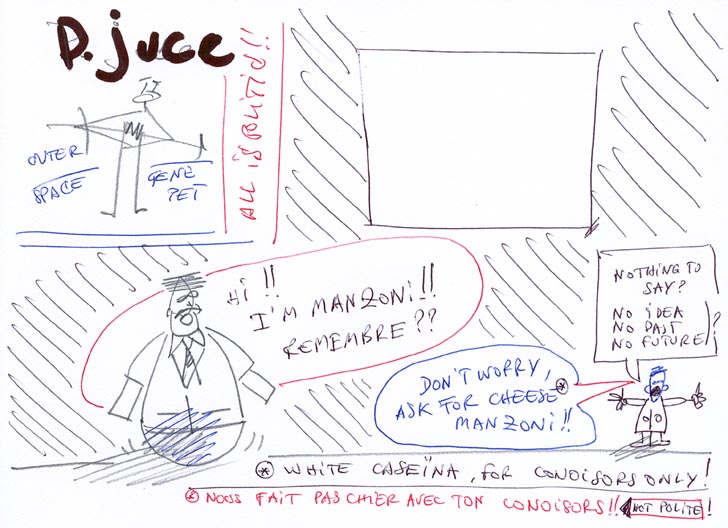 D. juce
ALL iS POLiTiC!!
OUTER
SPACE
GENE
PET
Hi !!
I'M MANZONi!!
REMEMBRE ??
NOTHING TO
SAY?
NO iDEA
NO PAST
NO FUTURE ?!
DON'T WORRY,
ASK FOR CHEESE*
MANZONi!!
* WHITE CASEÏNA, FOR CONOISORS ONLY!
* NOUS FAIT PAS CHIER AVEC TON CONOISORS!! NOT POLITE!